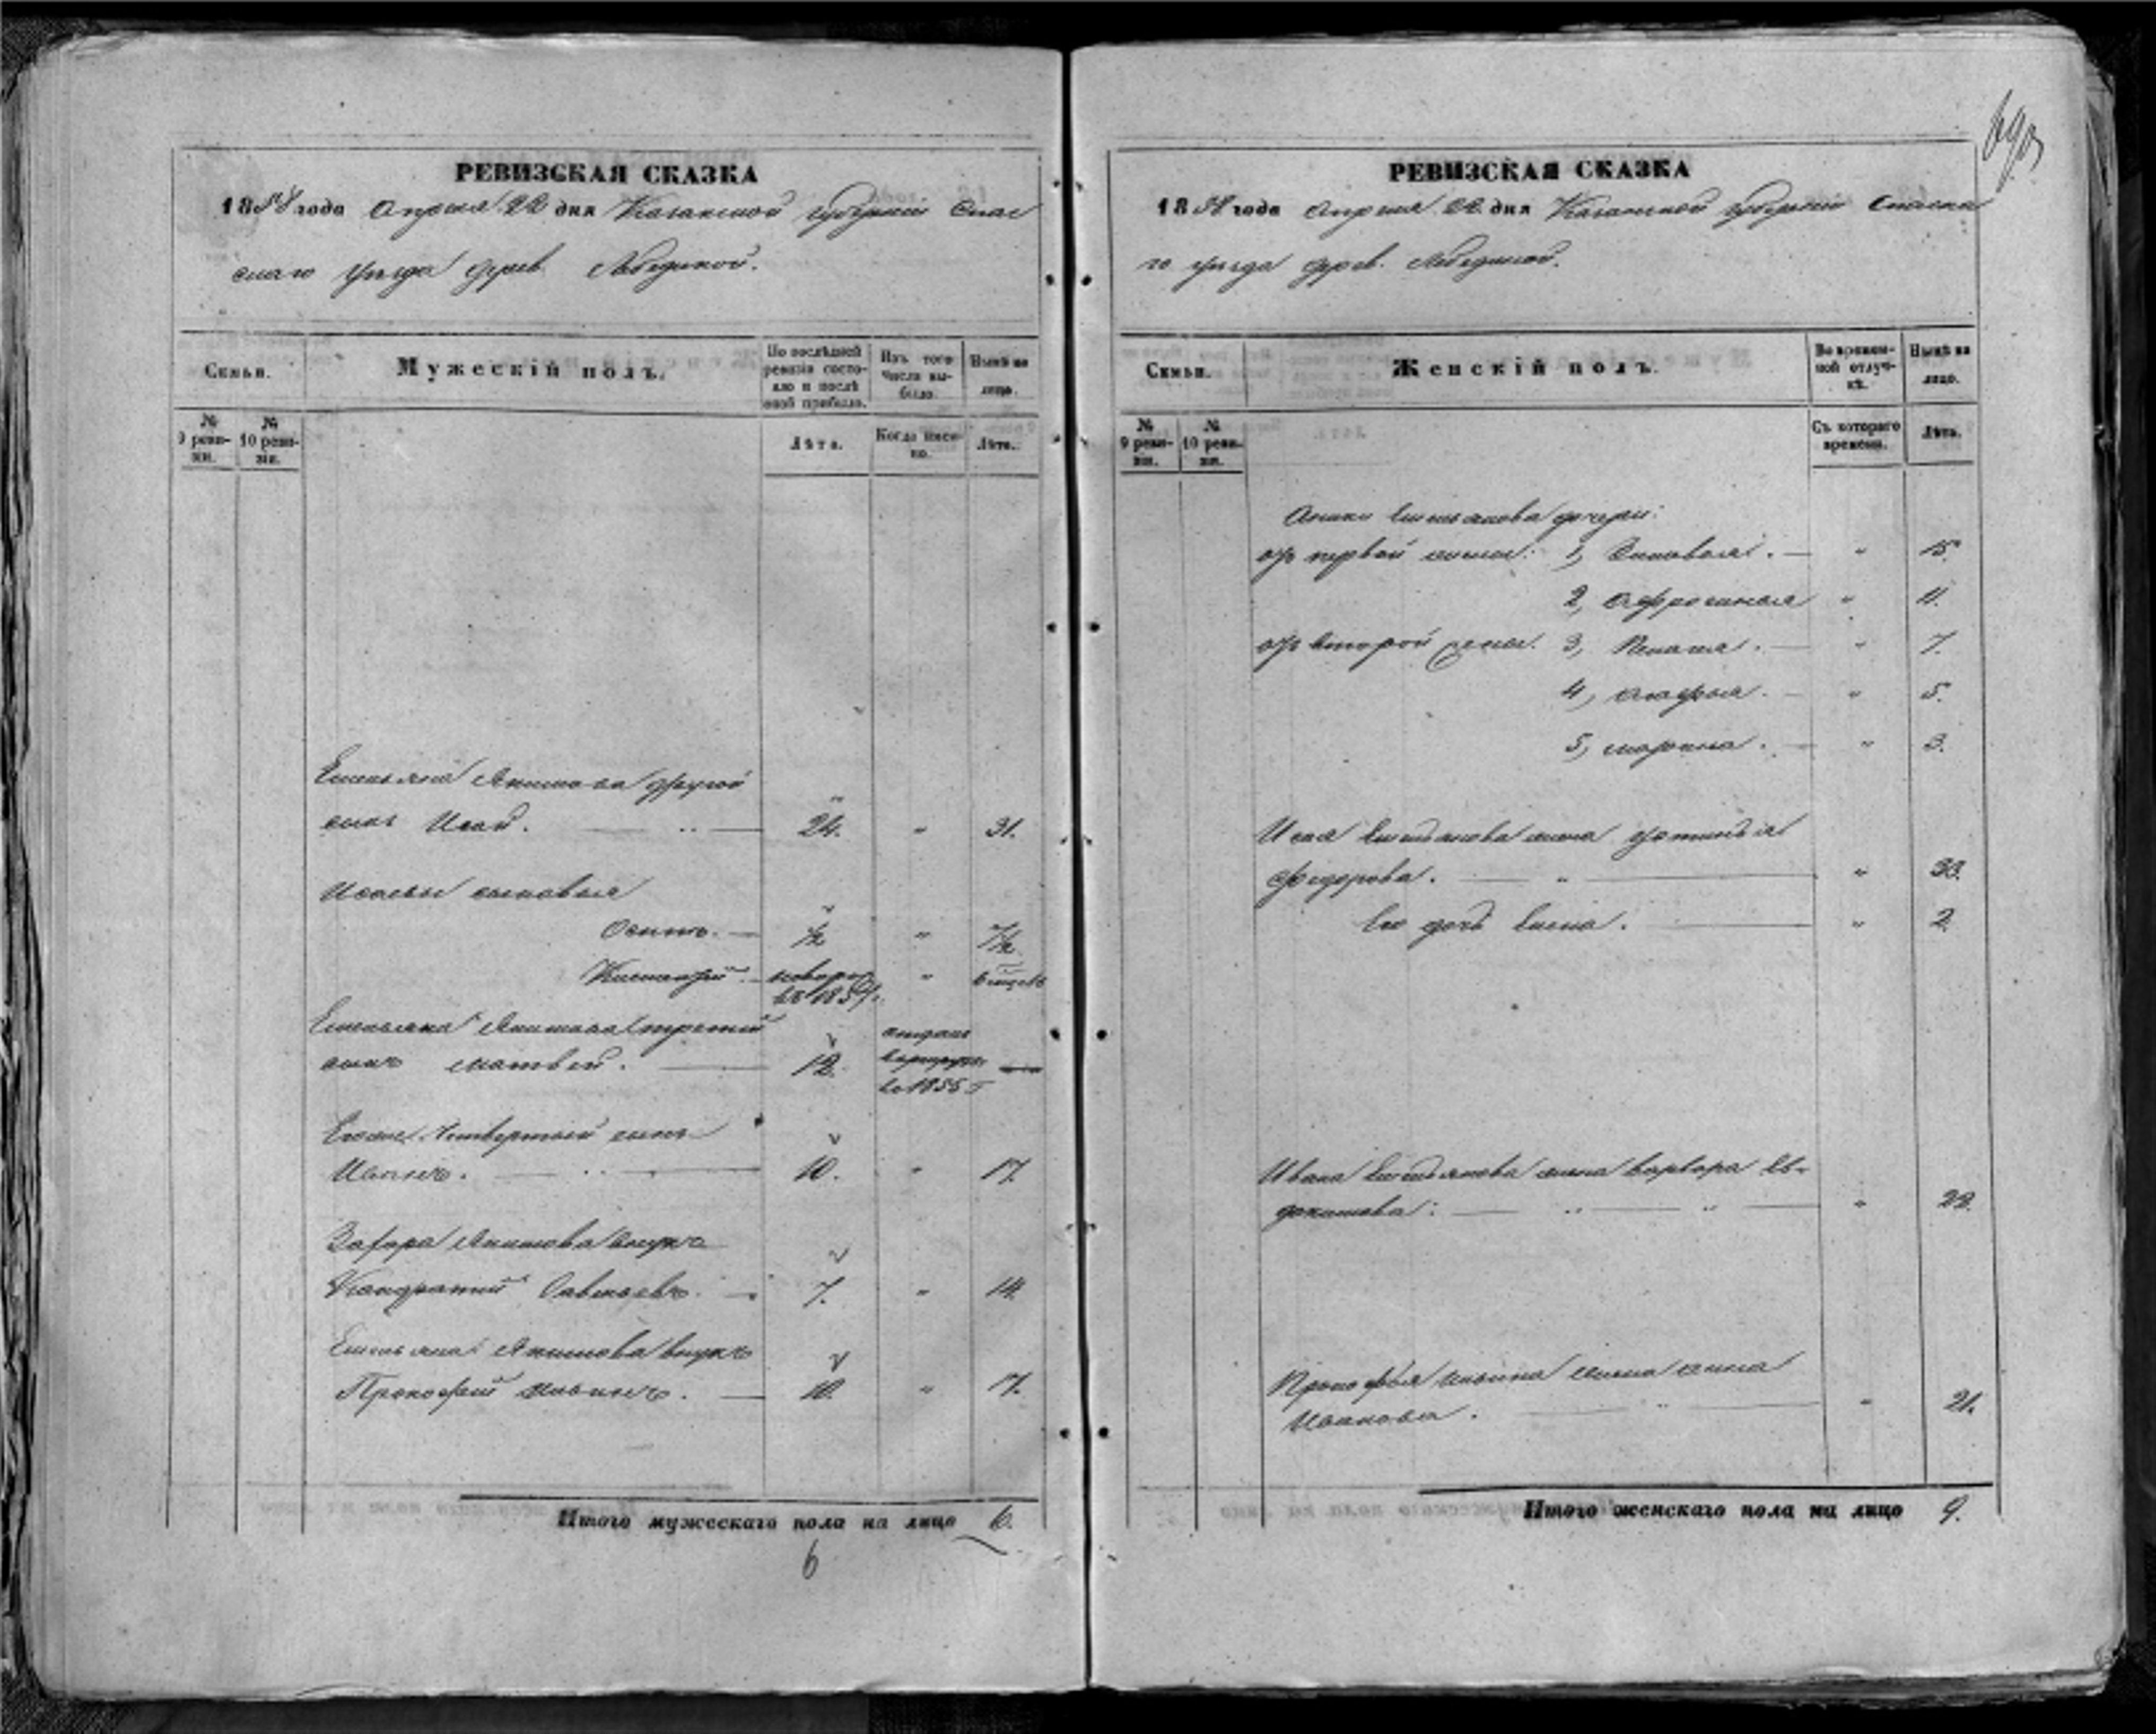 РЕВИЗСКАЯ СКАЗКА
1858 года Апреля 22 дня Казанской губернии Спас
скаго уезда дерев. Лебединой.
Семьи.
Мужескій полъ.
По послѣдней ревизіи состояло и послѣ оной прибыло.
Изъ того числа выбыло.
Нынѣ на лицо.
№ 9 ревизіи.
№ 10 ревизіи.
Лѣта.
Когда именно.
Лѣта.
Емельяна Акимова другой
сынъ Исай. 24. " 31.
Исаевы сыновья
Осипъ. 1/2 " 7 1/2
новорож.
въ 1857 г.
Емельяна Акимова третий
сынъ Матвей. 12.
отданъ
въ рекруты
въ 1855 г
Его же четвертый сынъ
Иванъ. 10. " 17.
Захара Акимова внукъ
Кондратий Савельевъ. 7. " 14.
Емельяна Акимова внукъ
Прокофий Ильинъ. 10. " 17.
Итого мужескаго пола на лицо 6.
6
РЕВИЗСКАЯ СКАЗКА
1858 года Апреля 22 дня Казанской губернии Спаска
го уезда дерев. Лебединой.
Семьи.
Женскій полъ.
Во временной отлучкѣ.
Нынѣ на лицо.
№ 9 ревизіи.
№ 10 ревизіи.
Съ котораго времени.
Лѣта.
Емельянова дочери:
отъ первой жены: 1, " 15.
2, Афросинья " 11.
отъ второй жены. 3, " 7.
4, " 5.
5, Марина. " 3.
Исая Емельянова жена Устинья
Федорова. " 33.
Его дочь Елена. " 2.
Ивана Емельянова жена Варвара Ев-
докимова: " 22.
Прокофья Ильина жена Анна
Иванова. " 21.
Итого женскаго пола на лицо 9.